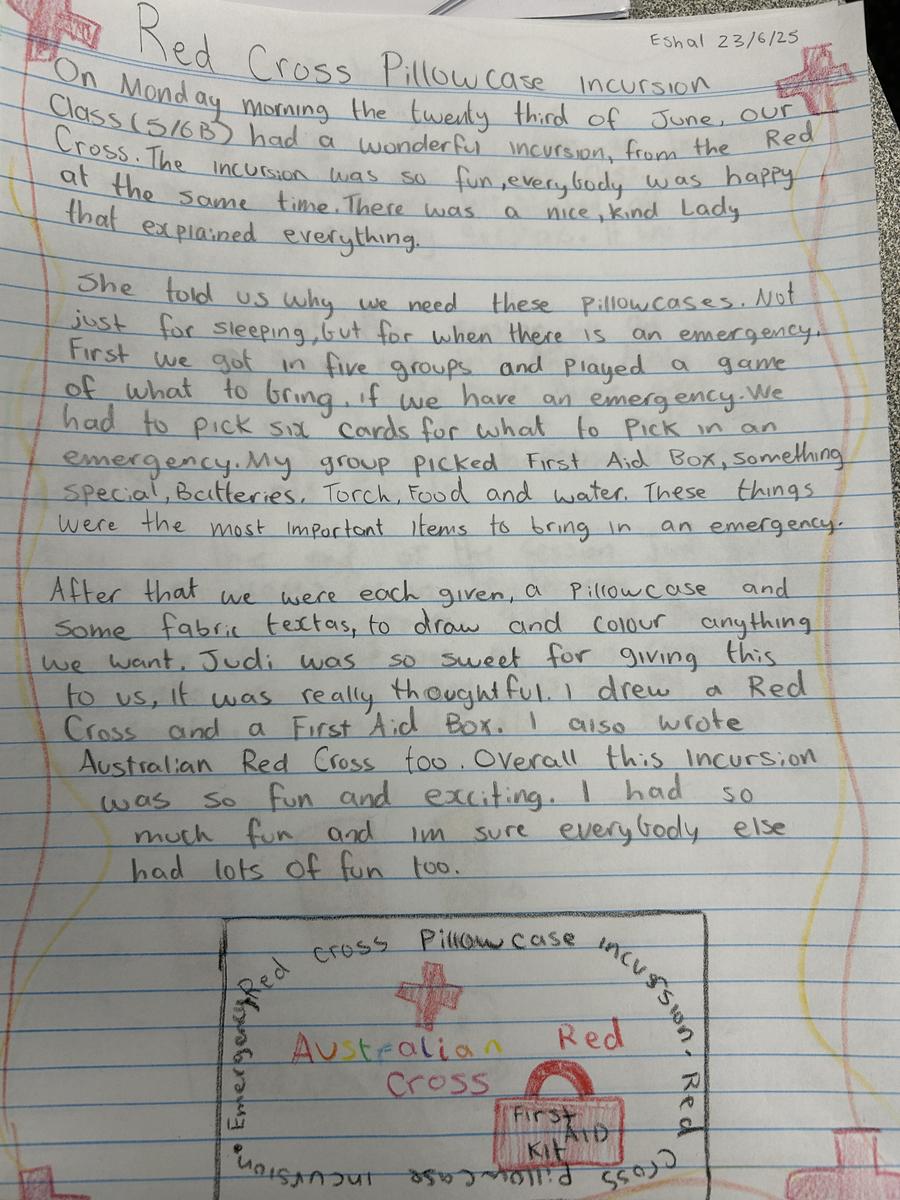 Eshal 23/6/25
Red Cross Pillowcase Incursion
On Monday morning the twenty third of June, our
Class (5/6B) had a wonderful incursion, from the Red
Cross. The incursion was so fun, everybody was happy
at the same time. There was a nice, kind Lady
that explained everything.
She told us why we need these pillowcases. Not
just for sleeping, but for when there is an emergency.
First we got in five groups and played a game
of what to bring, if we have an emergency. We
had to pick six cards for what to pick in an
emergency. My group picked First Aid Box, something
special, Batteries, Torch, Food and water. These things
were the most important items to bring in an emergency.
After that we were each given, a pillowcase and
some fabric textas, to draw and colour anything
we want. Judi was so sweet for giving this
to us, it was really thoughtful. I drew a Red
Cross and a First Aid Box. I also wrote
Australian Red Cross too. Overall this incursion
was so fun and exciting. I had so
much fun and im sure everybody else
had lots of fun too.
Red cross Pillowcase incursion. Red
Cross Pillowcase incursion. Emergency
Australian Red
Cross
First
AID
Kit